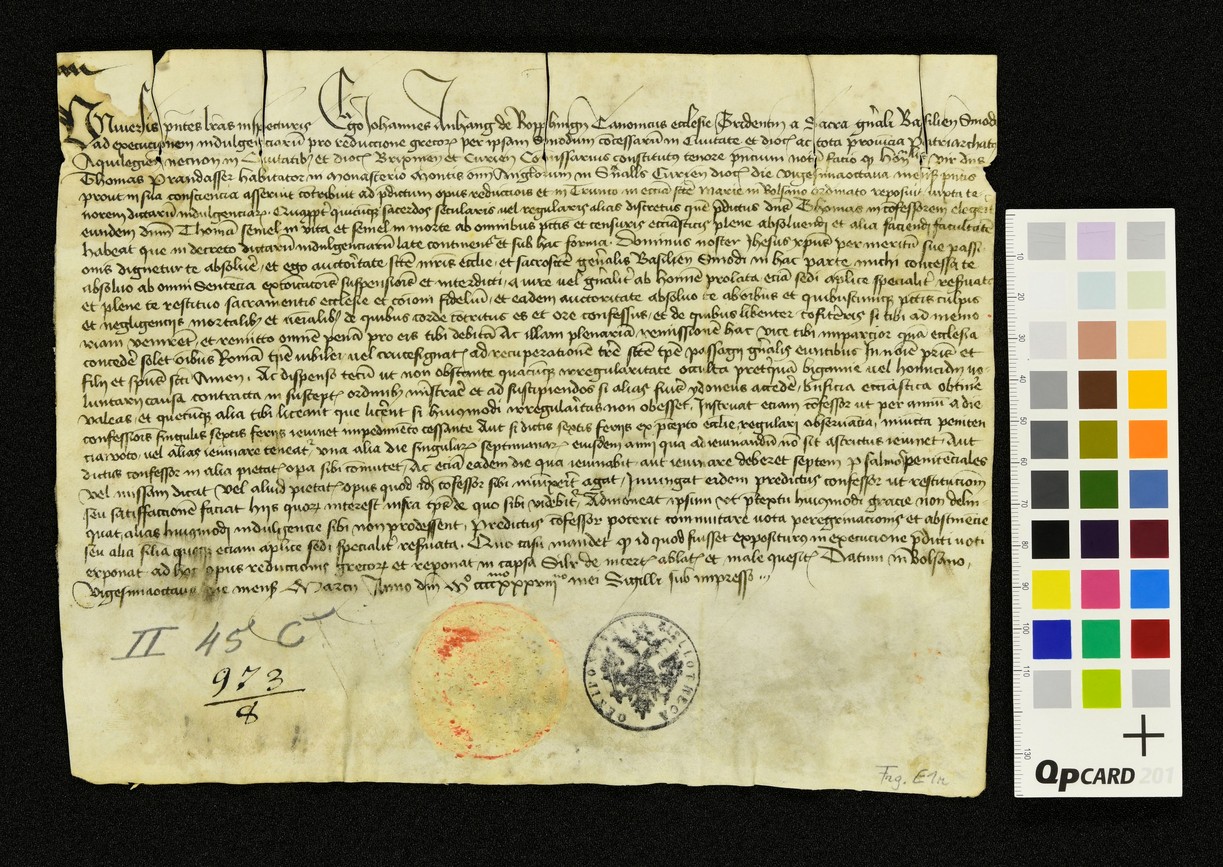 Universis pntes lras inspecturis Ego Johannes Anhang de Bopphingn Canonicus ecclesie Tridentin a Sacra gnali Basilien Sinod
ad execucionem indulgenciarū pro reduccione grecoꝝ per ipsam Sinodum cōcessarū in Civitate et dioc ac tota provicia Patriarchatꝰ
Aquilegien necnon in Civitatibꝫ et dioc Brixinen et Curien Comissarius constitutus tenore pncium notū facio ꝙ vir dns
Thomas Prandasser habitator in monasterio montis om̄ Angloꝝ in Snallis Curien dioc die vigesimaoctava mensꝭ pntis
prout in sua consciencia asseruit cōtribuit ad pdictum opus reduccōis et in Trunco in eccīa scte Marie in Bolsano ordinato reposuit iuxta te-
norem dictarū indulgenciaꝝ Quapp̄t quicūqꝫ sacerdos secularis vel regularis alias discretus quē pdictus dns Thomas in cōfessorem elegerit
eundem dnm Thomā semel in vita et semel in morte ab omnibus pctis et censuris eccīasticis plene absolvendi et alia faciendi facultatē
habeat que in decreto dictarū indulgenciarū late continent et sub hac forma. Dominus noster Jhesus xpus per meritū sue passi-
onis dignetur te absolvē, et ego auctoritate scte mris ecclie, et sacroscte gnalis Basilien Sinodi in hac parte michi concessa te
absolvo ab omi Sentecia excoicacōis suspensiōis et interdicti, a iure vel gnalit ab homīe prolata eciā sedi aplice specialit reservate
et plene te restituo sacramentis ecclesie et coīoni fideliū, et eadem auctoritate absolvo te ab oībus et quibuscūqꝫ pctis culpis
et negligencijs mortalibꝫ et venialibꝫ de quibus corde cōtritus es et ore confessus, et de quibus libenter cōfiteris si tibi ad memo-
riam venirēt, et remitto omnē penā pro eis tibi debitā Ac illam plenariā remissionē hac vice tibi impartior quā ecclesia
concedē solet oībus Romā tpe iubilei vel crucesignatꝭ ad recuperationē tre scte tpe passagij gnalis euntibus In noīe pris et
filij et spūs scti Amen. Ac dispenso tecū ut non obstante quacūqꝫ irregularitate occulta preterqꝫ bigamie vel homicidij vo-
luntarij causa contracta in susceptꝭ ordinibꝫ mistrare et ad suscipiendos si alias fuerꝭ ydoneus accedē, bnficia ecciastica obtinē
valeas, et quecūqꝫ alia tibi liceant que licerēt si huiusmodi irregularitas non obesset. Instruat eciam cōfessor ut per annū a die
confessiōis singulis sextis ferijs ieiunet impedimēto cessante Aut si dictis sextis ferijs ex pcepto ecclie, regulari observacīa, iniuncta peniten-
cia voto, vel alias ieiunare teneatʳ, una alia die singulaꝝ septimanaꝝ eiusdem anni qua ad ieiunandū nō sit astrictus ieiunet, Aut
dictus confessor in alia pietatꝭ opa sibi cōmutet, Ac eciā eadem die qua ieiunabit aut ieiunare deberet septem psalmos penitēciales
vel missam dicat vel aliud pietatꝭ opus quod idē cōfessor sibi iniūxerit agat, Iniungat eidem predictus confessor ut restitucionē
seu satisfactionē faciat hijs quoꝝ interest infra tps de quo sibi videbitʳ, Admoneat ipsum ut ptextu huiusmodi gracie non delin-
quat, alias huiusmodi indulgencie sibi non prodessent, Predictus cōfessor poterit commutare vota peregrinacionis et abstinēcie
seu alia similia quecūqꝫ eciam aplice sedi specialit reservata. Quo casu mandet ꝙ id quod fuisset expositurus in execucione pdicti voti
exponat ad hoc opus reductionis grecoꝝ et reponat in capsa Silꝭ de incertꝭ ablatꝭ et male quesitꝭ Datum in Bolsano,
Vigesimaoctava die mensꝭ Marcij Anno dni Mº ccccºxxxviiiº mei Sigilli sub impresso
II 45 C
973
8
OENIPONTANA BIBLIOTHECA
Frg. E1r
QPCARD 201
10
20
30
40
50
60
70
80
90
100
110
130